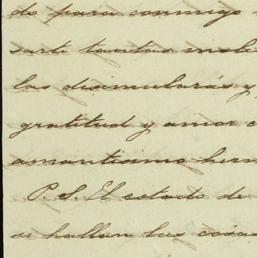 do para conmigo
tantas mole
las disimularás y
gratitud y amor
amantisimo her
P. S. El estado de
se hallan las cosa